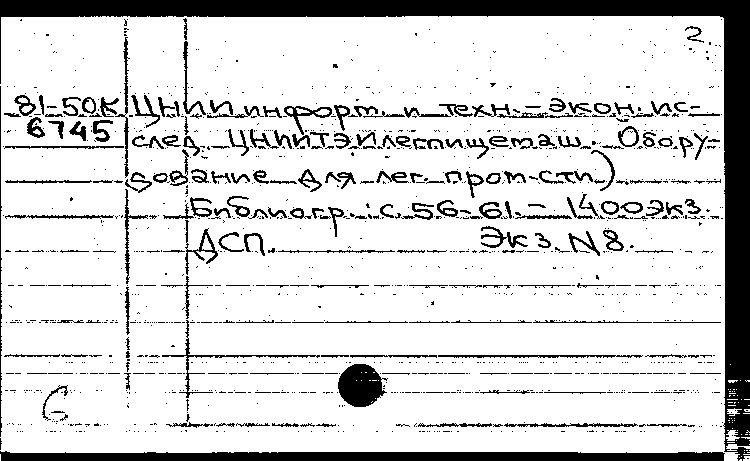 2.
81-50К ЦНИИ информ. и техн.-экон. ис-
6745 след. ЦНИИТЭИлегпищемаш. Обору-
дование для лег. пром-сти)
Библиогр.: с. 56-61. - 1400экз.
ДСП. Экз. N 8.
6